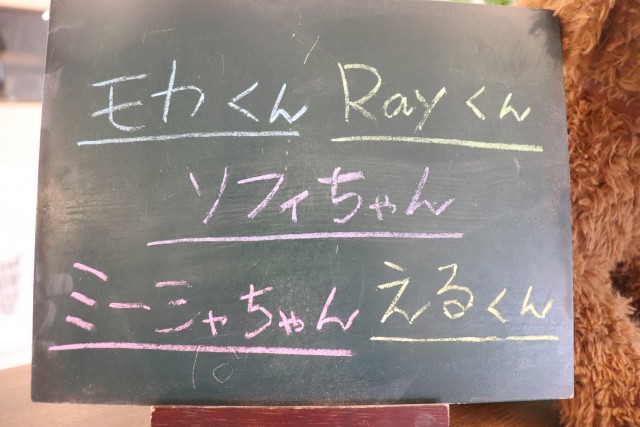 モカくん Rayくん
ソフィちゃん
ミーシャちゃん えるくん